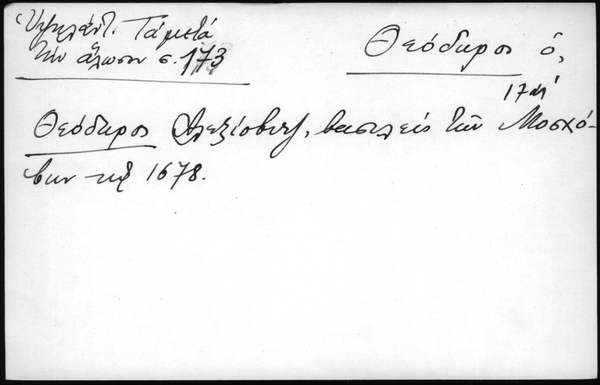 Ὑψηλάντ. Τά μετά
τήν ἅλωσιν σ. 173
Θεόδωρος ὁ,
Θεόδωρος Ἀλεξίοβιτζ, βασιλεύς τῶν Μοσχό-
βων τῷ 1678.